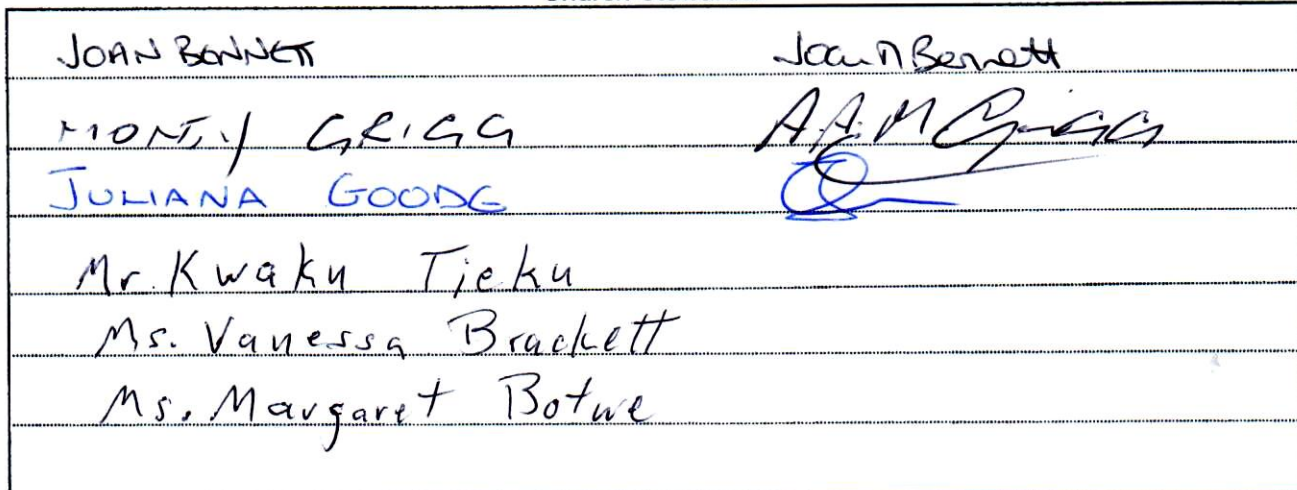 JOAN BENNETT Joan M Bennett
MONTY GRIGG A.A.M Grigg
JULIANA GOODE
Mr. Kwaku Tieku
Ms. Vanessa Brackett
Ms. Margaret Botwe